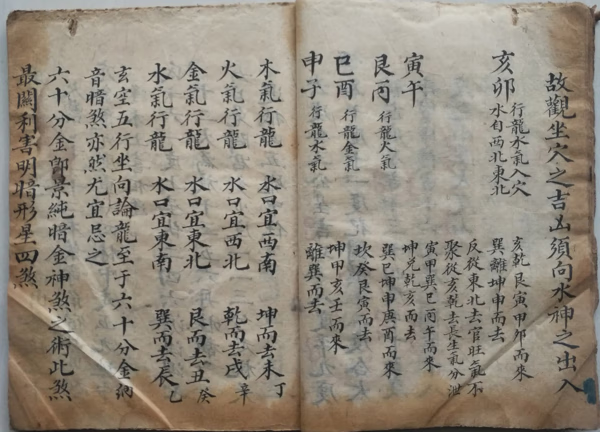 故觀坐穴之吉凶須向水神之出入
亥卯
行龍水氣入穴
水自西北東北
亥乾艮寅甲卯而來
巽離坤申而去
反從東北去官旺氣不
聚從亥乾去長生氣分泄
寅午
寅甲巽巳丙午而來
坤兑乾亥而去
艮丙
行龍火氣
巽巳坤申庚酉而來
坎癸艮寅而去
巳酉
行龍金氣
坤申亥壬而來
離巽而去
申子
行龍水氣
木氣行龍 水口宜西南 坤而去未丁
火氣行龍 水口宜西北 乾而去戌辛
金氣行龍 水口宜東北 艮而去丑癸
水氣行龍 水口宜東南 巽而去辰乙
玄空五行坐向論龍至于六十分金納
音暗煞亦然尤宜忌之
六十分金郭景純暗金神煞之術此煞
最關利害明暗形星四煞